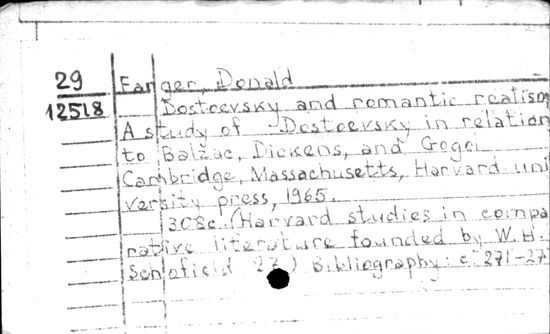 29 Fanger, Donald
12518 Dostoevsky and romantic realism
A study of Dostoevsky in relation
to Balzac, Dickens, and Gogol
Cambridge, Massachusetts, Harvard uni
versity press, 1965.
308c. (Harvard studies in compa
rative literature founded by W.H.
Schofield 27) Bibliography: c. 271-27